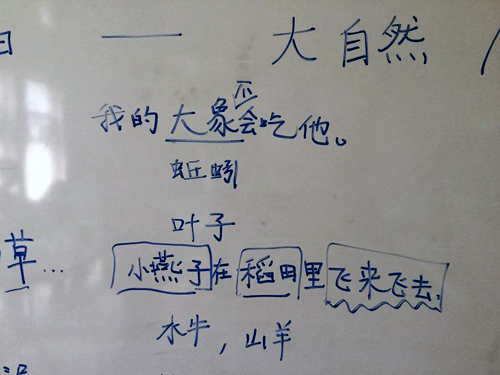 日 —— 大自然 （
我的大象不会吃他。
蚯蚓
叶子
草… 小燕子在稻田里飞来飞去，
水牛，山羊